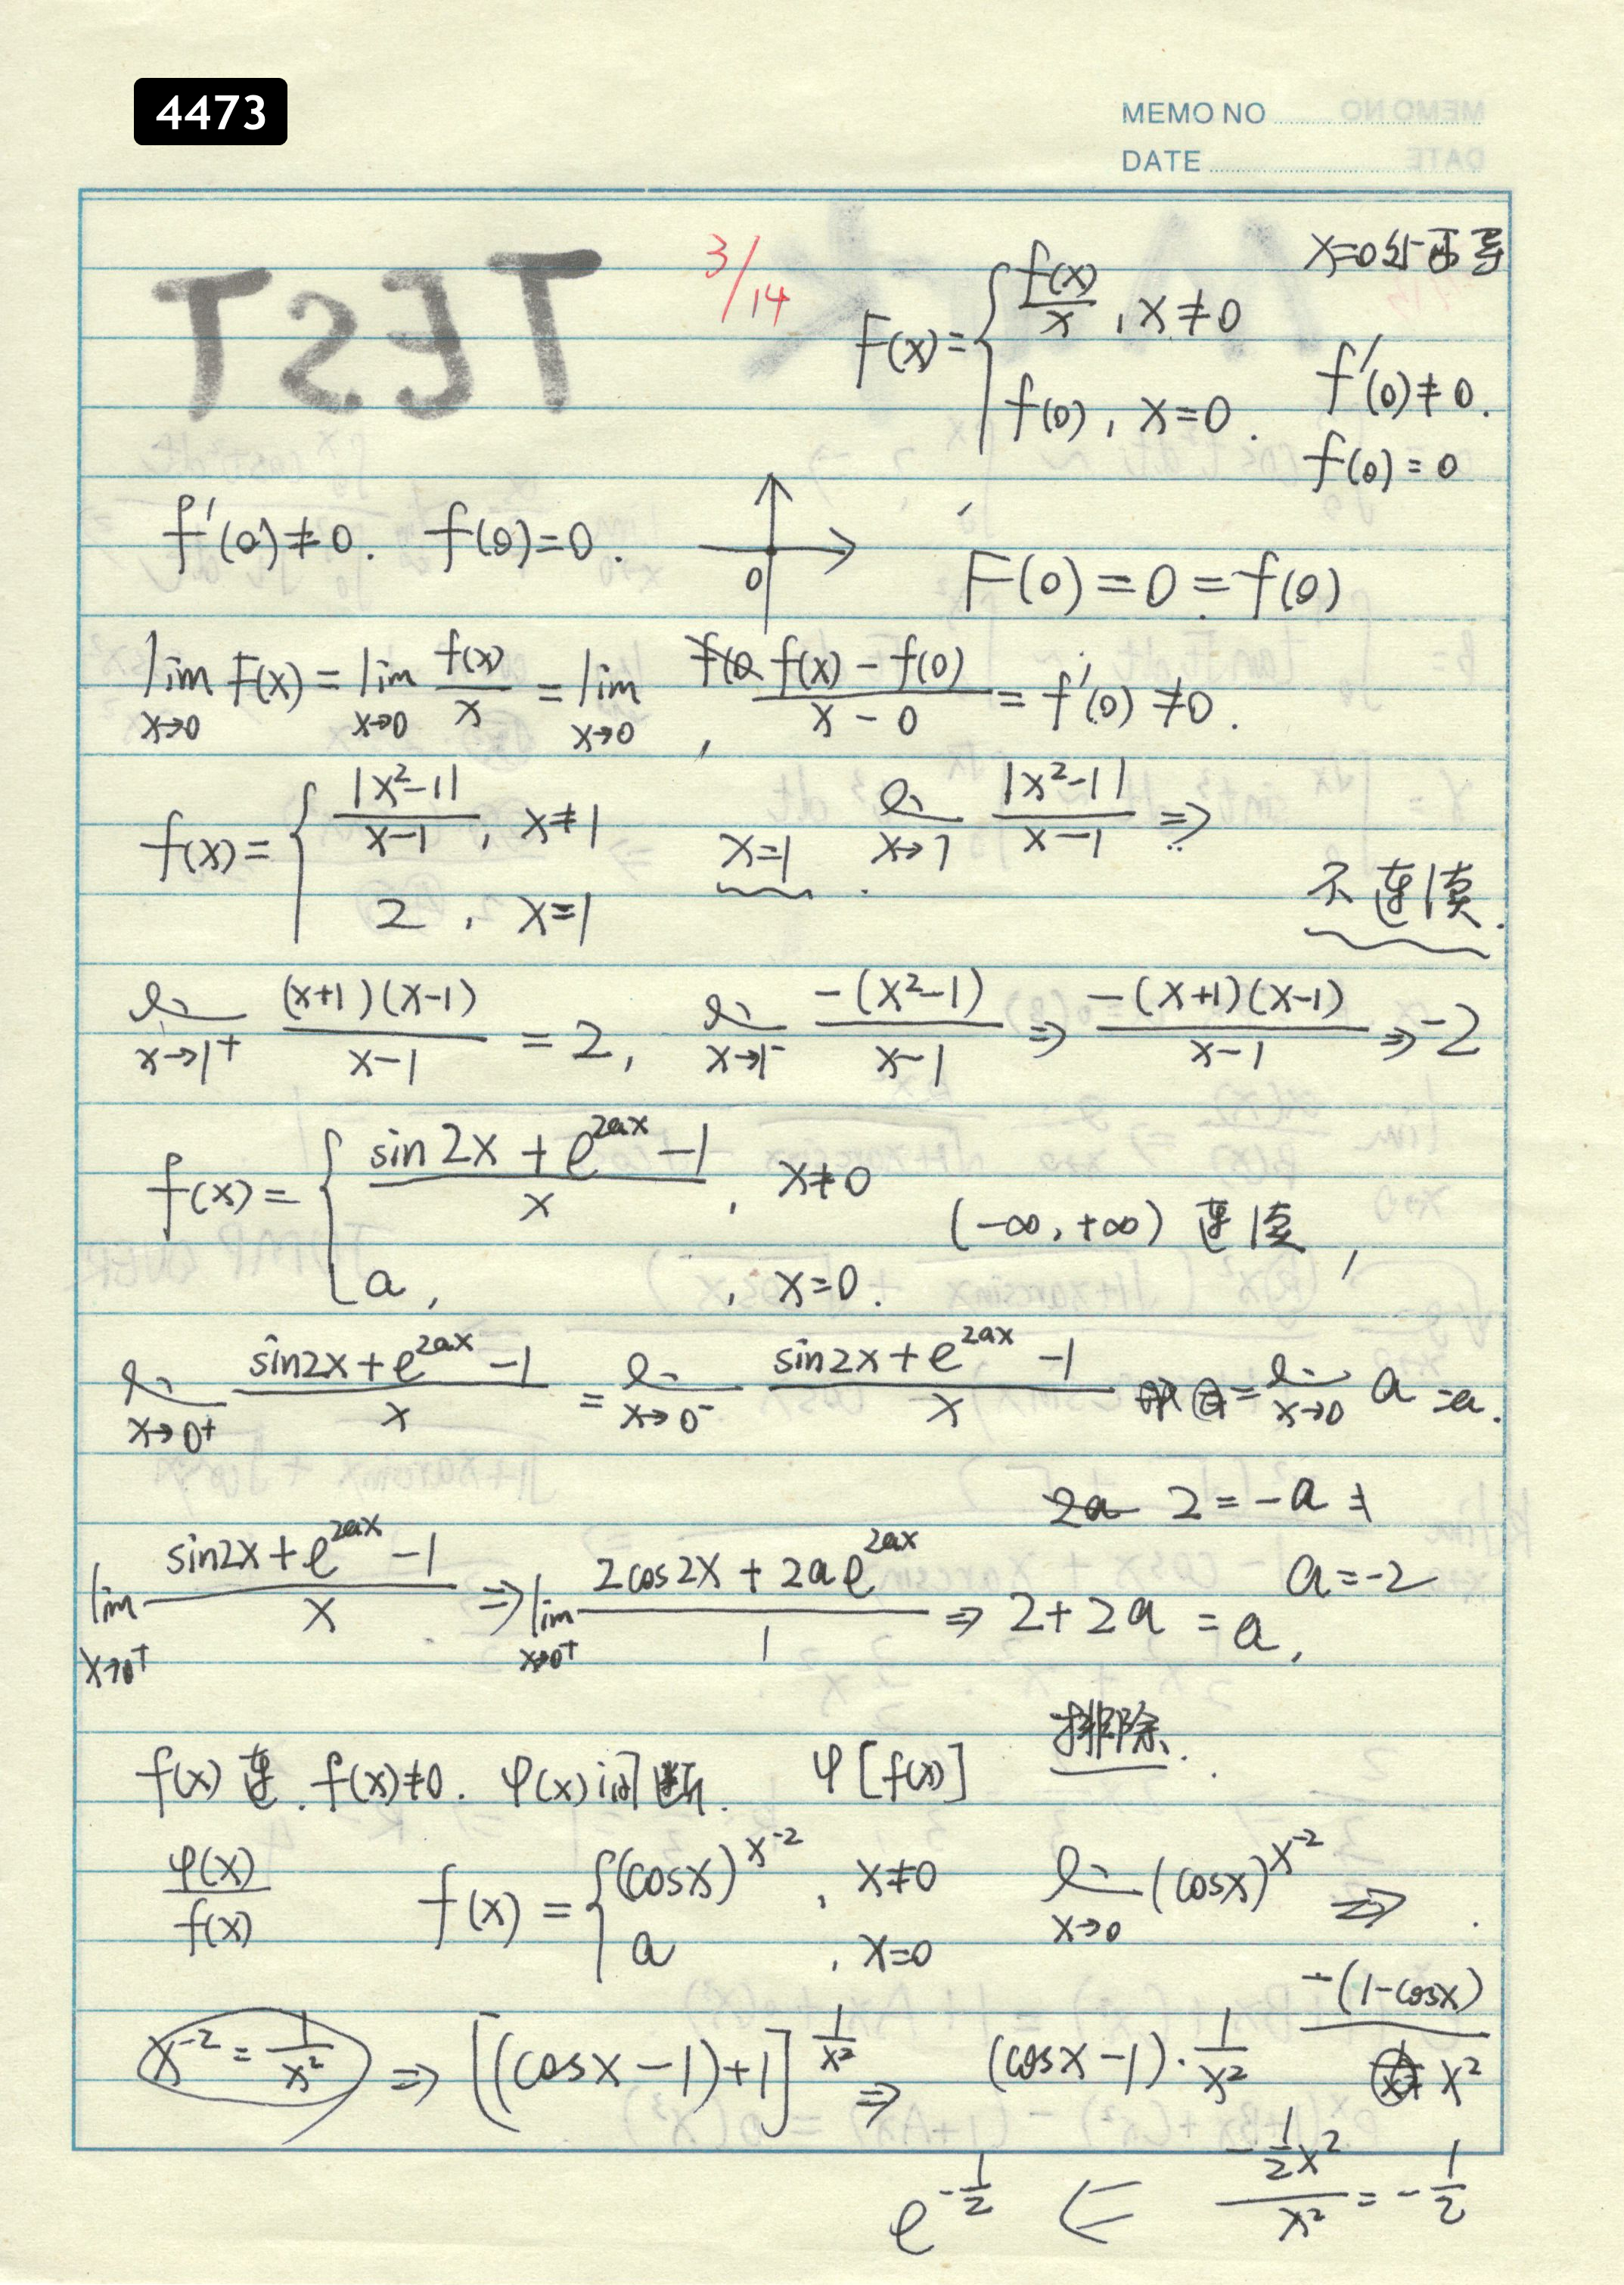 4473
MEMO NO
DATE
TEST
3/14
x=0处可导
F(x) = { f(x)/x , x≠0
f(0) , x=0 .
f'(0)≠0.
f(0)=0
f'(0)≠0. f(0)=0.
0
F(0)=0=f(0)
lim x→0 F(x) = lim x→0 f(x)/x = lim x→0 (f(x)-f(0))/(x-0) = f'(0)≠0.
f(x) = { |x²-1|/(x-1) , x≠1
2 , x=1
x=1 . lim x→1 |x²-1|/(x-1) ⇒
不连续.
lim x→1⁺ (x+1)(x-1)/(x-1) = 2, lim x→1⁻ -(x²-1)/(x-1) ⇒ -(x+1)(x-1)/(x-1) ⇒ -2
f(x) = { (sin2x+e^{2ax}-1)/x , x≠0
a, , x=0.
(-∞,+∞) 连续,
lim x→0⁺ (sin2x+e^{2ax}-1)/x = lim x→0⁻ (sin2x+e^{2ax}-1)/x = lim x→0 a =a.
2a 2=-a
a=-2
lim x→0⁺ (sin2x+e^{2ax}-1)/x ⇒ lim x→0⁺ (2cos2x+2ae^{2ax})/1 ⇒ 2+2a = a,
排除.
f(x)连. f(x)≠0. φ(x)间断. φ[f(x)]
φ(x)/f(x)
f(x) = { (cosx)^{x⁻²} , x≠0
a , x=0
lim x→0 (cosx)^{x⁻²} ⇒
x⁻² = 1/x² ⇒ [(cosx-1)+1]^{1/x²} ⇒ (cosx-1)·1/x² -(1-cosx)/x²
e^{-1/2} ⇐ (-½x²)/x² = -1/2